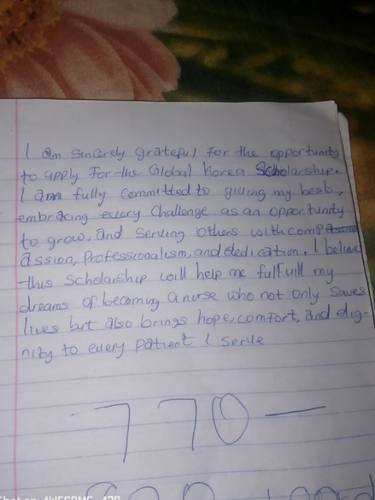 I am sincerely grateful for the opportunity
to apply for the Global Korea Scholarship.
I am fully committed to giving my best,
embracing every challenge as an opportunity
to grow, and serving others with comp
assion, Professionalism, and dedication. I believe
this Scholarship will help me fulfull my
dreams of becoming a nurse who not only saves
lives but also brings hope, comfort, and dig-
nity to every patient I serve
770 —